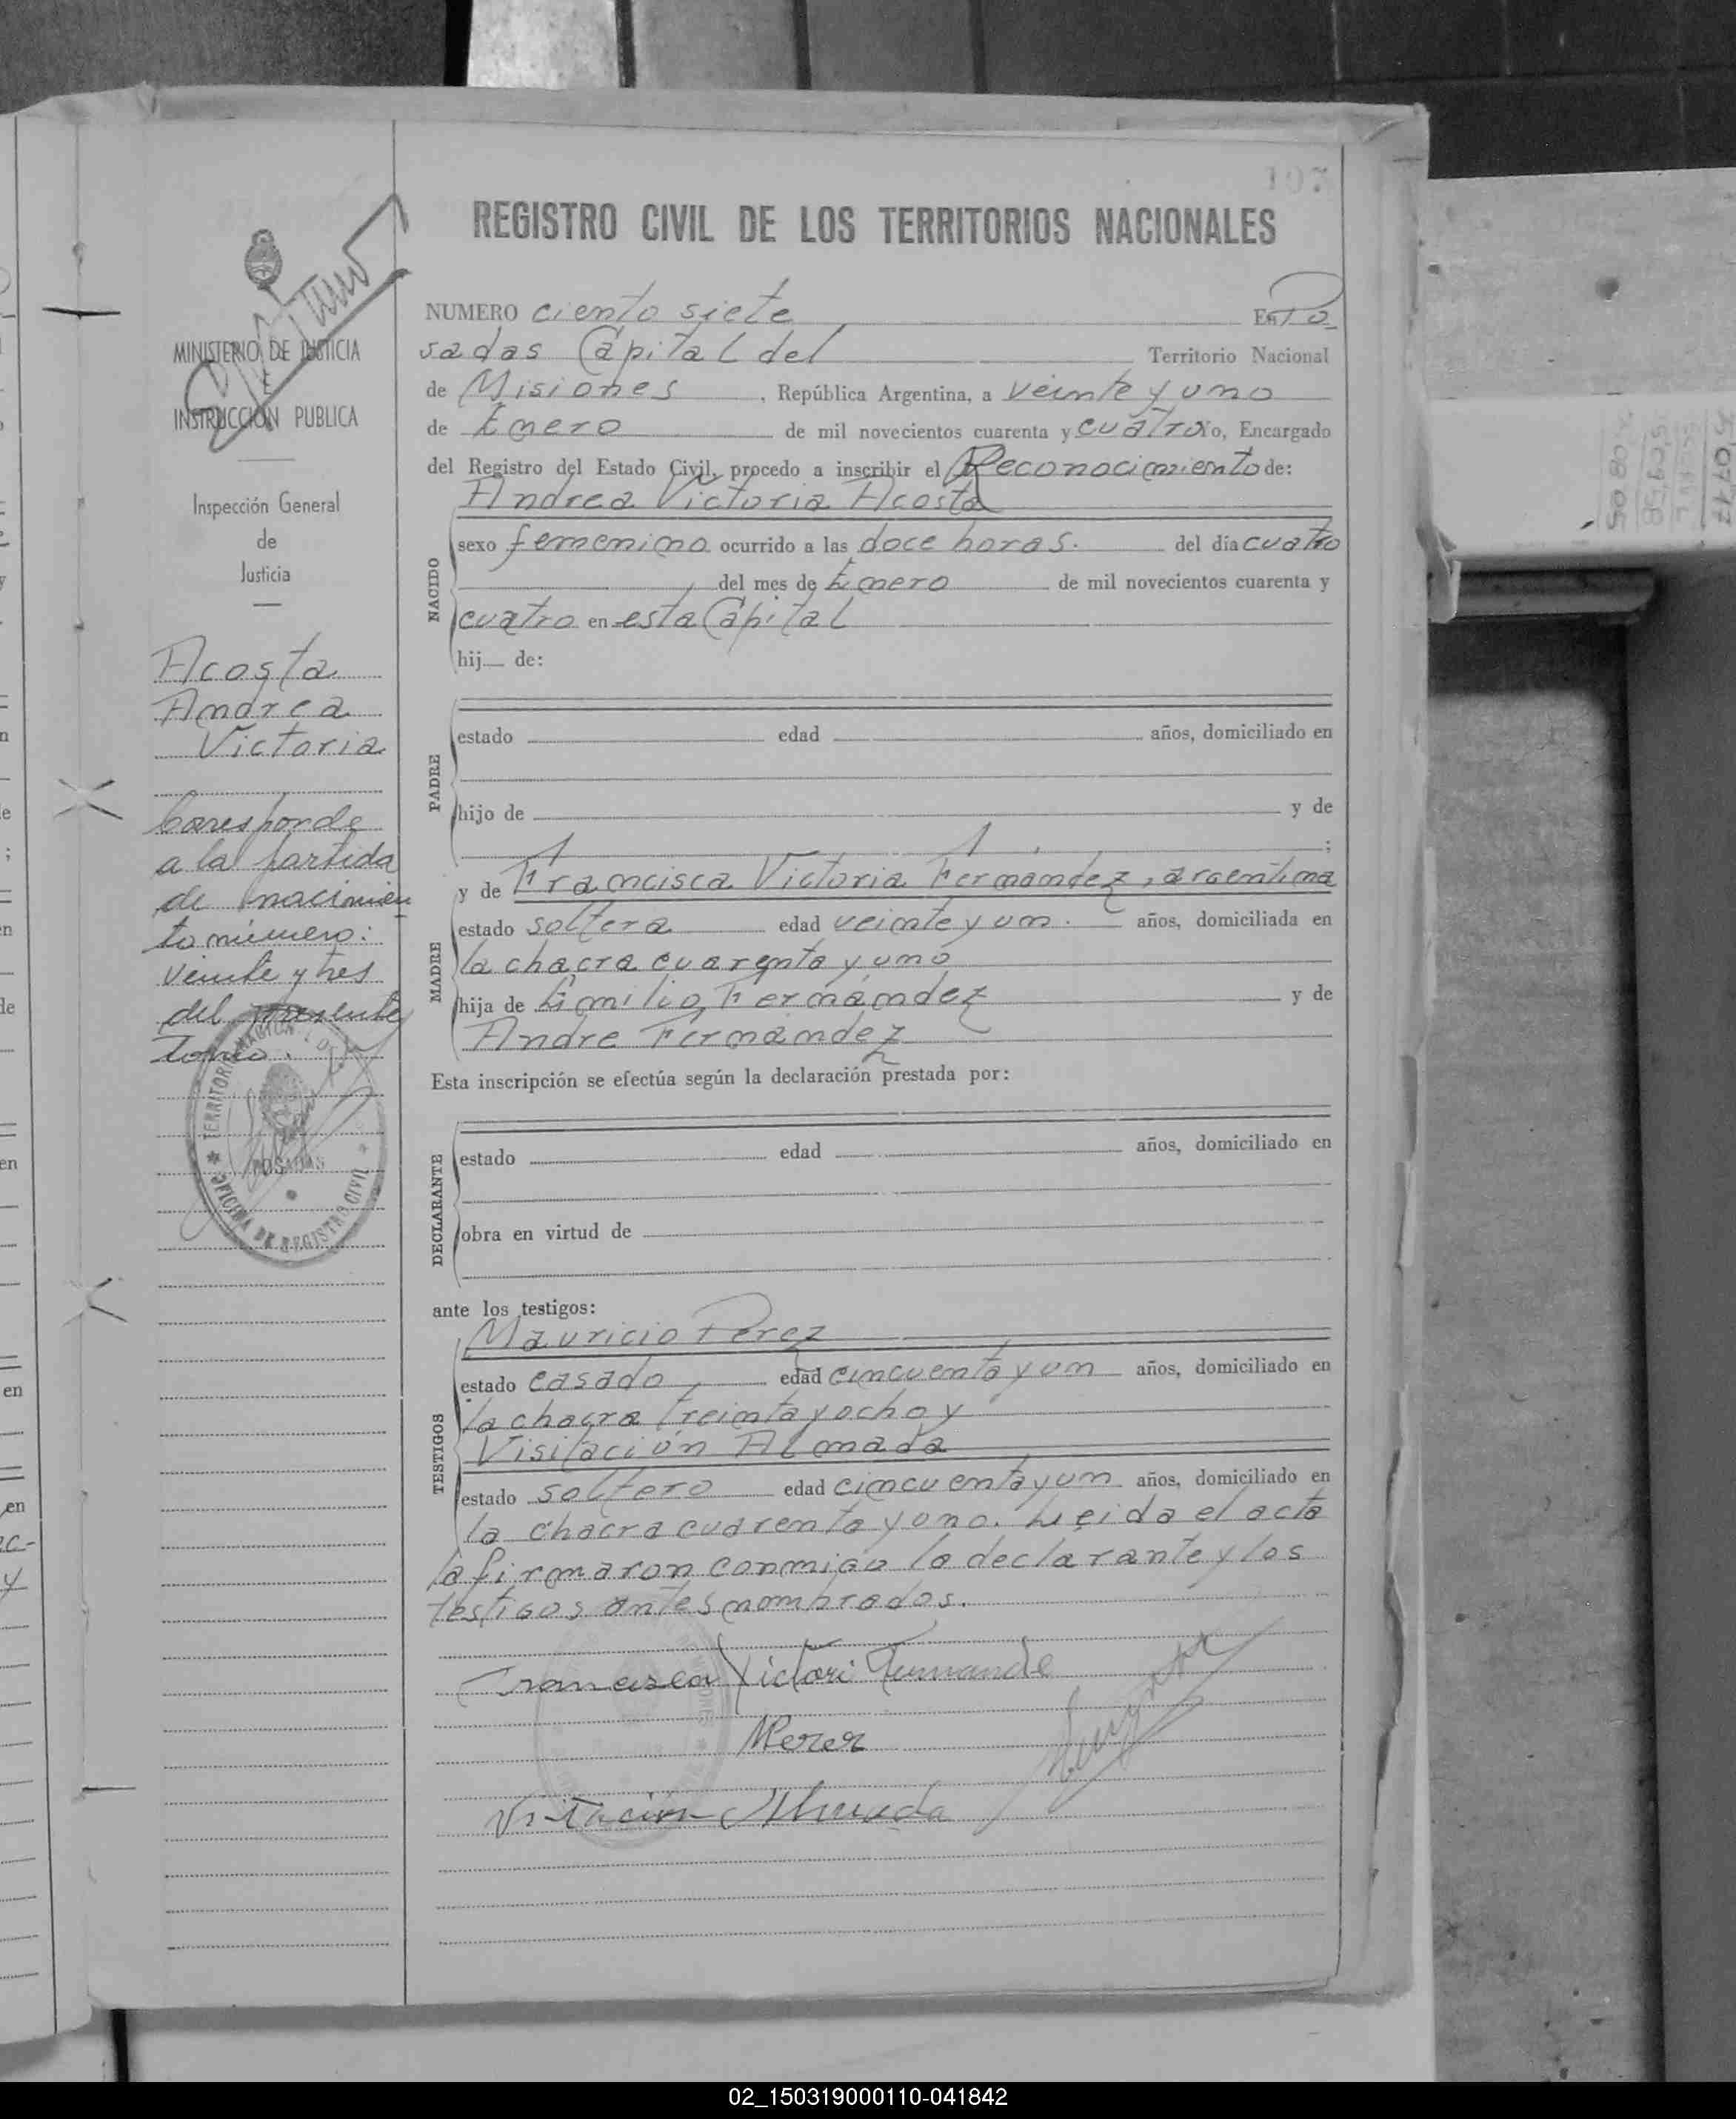 107
REGISTRO CIVIL DE LOS TERRITORIOS NACIONALES
MINISTERIO DE JUSTICIA
E
INSTRUCCIÓN PUBLICA
Inspección General
de
Justicia
Acosta
Andrea
Victoria
Corresponde
a la partida
de nacimien
to número:
veinte y tres
del presente
tomo.
TERRITORIO NACIONAL
POSADAS
OFICINA DE REGISTRO CIVIL
NUMERO ciento siete En Po
sadas Capital del Territorio Nacional
de Misiones, República Argentina, a veinte y uno
de Enero de mil novecientos cuarenta y cuatro Yo, Encargado
del Registro del Estado Civil, procedo a inscribir el Reconocimiento de:
Andrea Victoria Acosta
NACIDO
sexo femenino ocurrido a las doce horas. del día cuatro
del mes de Enero de mil novecientos cuarenta y
cuatro en esta Capital
hij de:
PADRE
estado edad años, domiciliado en
hijo de y de
;
y de Francisca Victoria Fernandez, argentina
MADRE
estado soltera edad veinte y un. años, domiciliada en
la chacra cuarenta y uno
hija de Emilio Fernández y de
Andre Fernández
Esta inscripción se efectúa según la declaración prestada por:
DECLARANTE
estado edad años, domiciliado en
obra en virtud de
ante los testigos:
Mauricio Perez
TESTIGOS
estado casado edad cincuenta y un años, domiciliado en
la chacra treinta y ocho y
Visitación Almada
estado soltero edad cincuenta y un años, domiciliado en
la chacra cuarenta y uno. Leida el acta
la firmaron conmigo la declarante y los
testigos antes nombrados.
Francisca Victori Fernande
MPerez
Vitación Almada
02_150319000110-041842